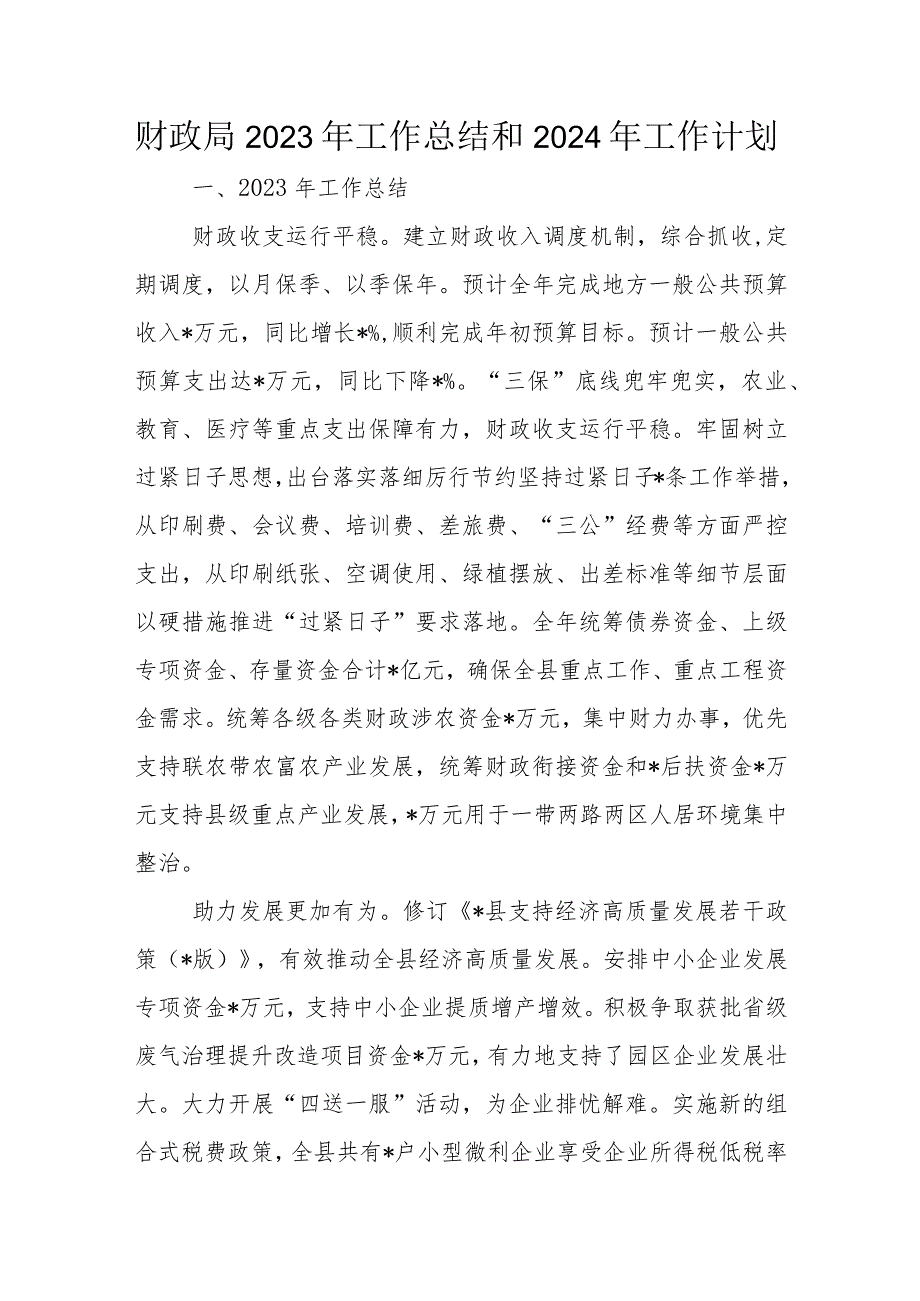 财政局2023年工作总结和2024年工作计划
一、2023年工作总结
财政收支运行平稳。建立财政收入调度机制，综合抓收,定
期调度，以月保季、以季保年。预计全年完成地方一般公共预算
收入*万元，同比增长*%,顺利完成年初预算目标。预计一般公共
预算支出达*万元，同比下降*%。“三保”底线兜牢兜实，农业、
教育、医疗等重点支出保障有力，财政收支运行平稳。牢固树立
过紧日子思想,出台落实落细厉行节约坚持过紧日子*条工作举措，
从印刷费、会议费、培训费、差旅费、“三公”经费等方面严控
支出，从印刷纸张、空调使用、绿植摆放、出差标准等细节层面
以硬措施推进“过紧日子”要求落地。全年统筹债券资金、上级
专项资金、存量资金合计*亿元，确保全县重点工作、重点工程资
金需求。统筹各级各类财政涉农资金*万元，集中财力办事，优先
支持联农带农富农产业发展，统筹财政衔接资金和*后扶资金*万
元支持县级重点产业发展，*万元用于一带两路两区人居环境集中
整治。
助力发展更加有为。修订《*县支持经济高质量发展若干政
策（*版）》，有效推动全县经济高质量发展。安排中小企业发展
专项资金*万元，支持中小企业提质增产增效。积极争取获批省级
废气治理提升改造项目资金*万元，有力地支持了园区企业发展壮
大。大力开展“四送一服”活动，为企业排忧解难。实施新的组
合式税费政策，全县共有*户小型微利企业享受企业所得税低税率